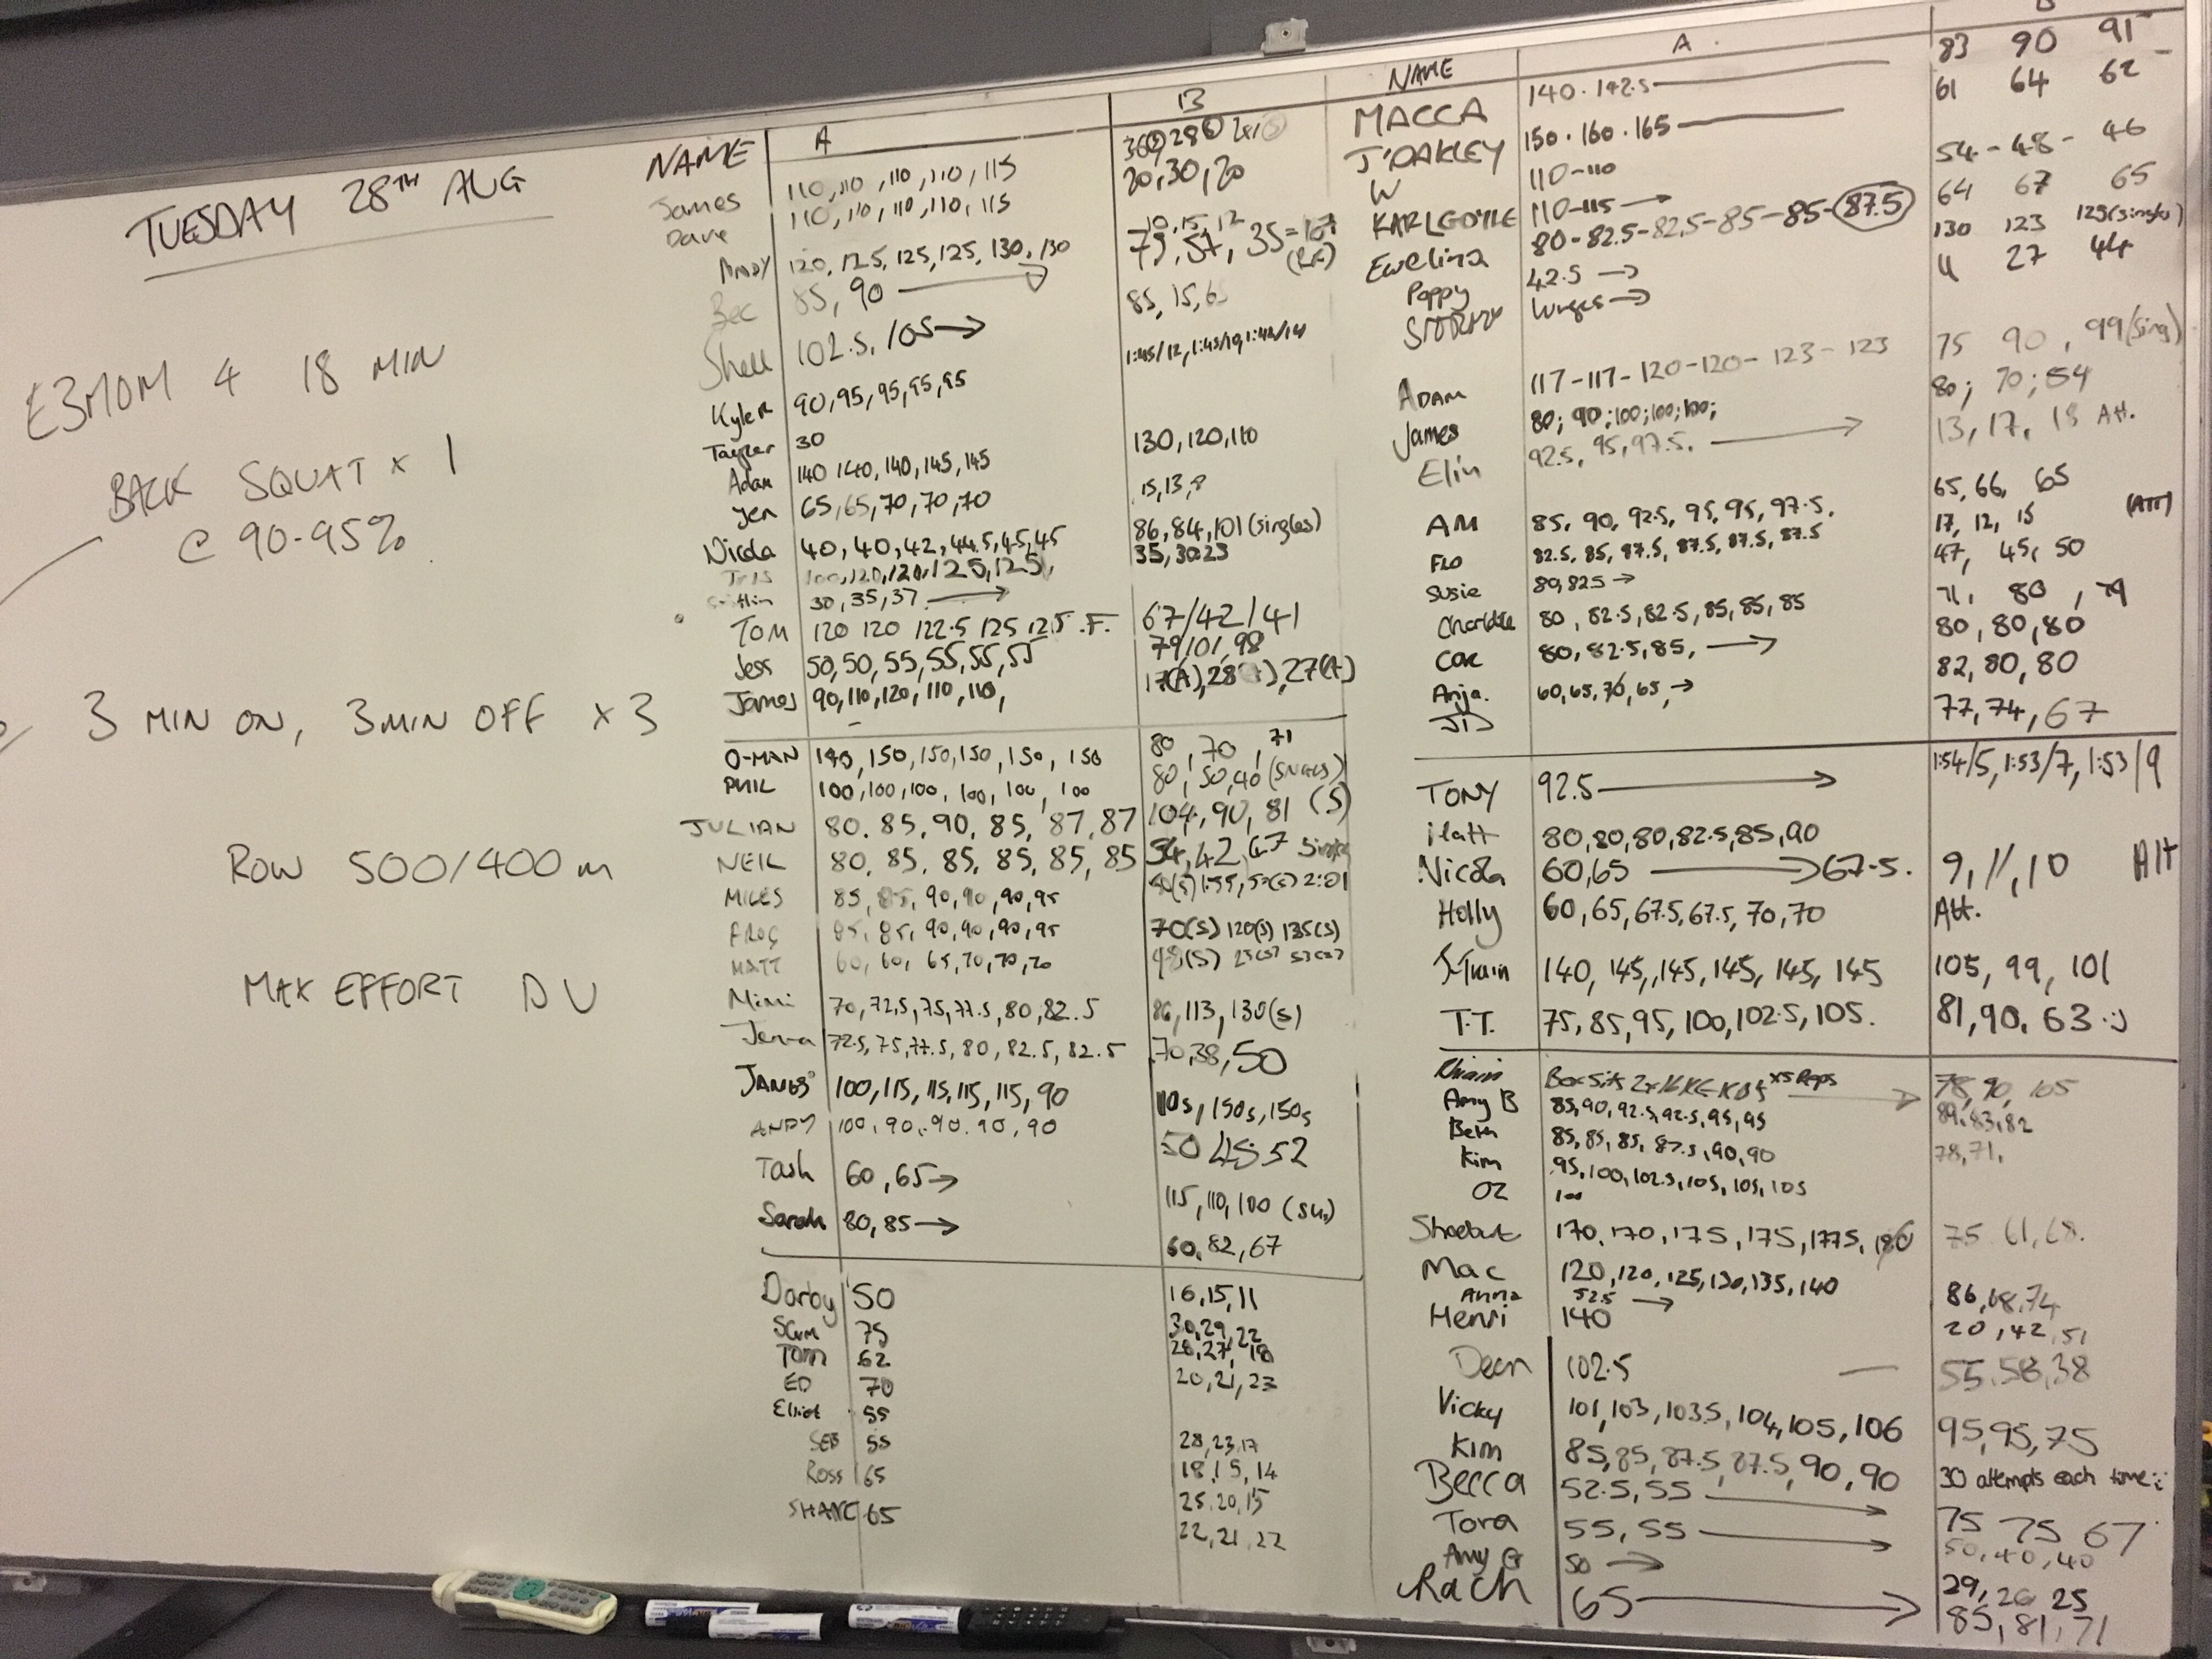 TUESDAY 28TH AUG
E3MOM 4 18 MIN
BACK SQUAT x 1
@ 90-95%
3 MIN ON, 3 MIN OFF x 3
ROW 500/400 m
MAX EFFORT DU
NAME A B
James 110, 110, 110, 110, 115
Dave 110, 110, 110, 110, 115 20, 30, 20
Andy 120, 125, 125, 125, 130, 130 10, 15, 12
Bec 85, 90 → 79, 57, 35 =
Shell 102.5, 105 → 85, 15,
Kyler 90, 95, 95, 95, 95
Tayler 30
Adam 140 140, 140, 145, 145 130, 120, 110
Jen 65, 65, 70, 70, 70 15, 13, 8
Nicola 40, 40, 42, 44.5, 45, 45 86, 84, 101 (singles)
Tris 100, 120, 120, 125, 125, 35, 30 23
30, 35, 37 →
TOM 120 120 122.5 125 125 .F. 67/42/41
Jess 50, 50, 55, 55, 55, 55 79, 101, 98
James 90, 110, 120, 110, 110, 17(A), 28 , 27(A)
O-MAN 140, 150, 150, 150, 150, 150 80, 70, 71
PHIL 100, 100, 100, 100, 100, 100 80, 50, 40
JULIAN 80. 85, 90, 85, 87, 87 104, 90, 81 (S)
NEIL 80, 85, 85, 85, 85, 85 54, 42, 67
MILES 85, 85, 90, 90, 90, 95
FROG 85, 85, 90, 90, 90, 95 70(S) 120(S) 135(S)
MATT 60, 60, 65, 70, 70, 70 98(S)
Mimi 70, 72.5, 75, 77.5, 80, 82.5 86, 113, 130(s)
Jenna 72.5, 75, 77.5, 80, 82.5, 82.5 70, 38, 50
JAMES 100, 115, 115, 115, 115, 90 110s, 150s, 150s
ANDY 100, 90, 90. 90, 90 50 48 52
Tash 60, 65 → 115, 110, 100
Sarah 80, 85 → 60, 82, 67
Darby 50 16, 15, 11
Sam 75 30, 29, 22
Tom 62 28, 27, 18
ED 70 20, 21, 23
Elliot 55
SEB 55 28, 23, 17
Ross 65 18, 15, 14
65 25, 20, 15
22, 21, 22
NAME A B
MACCA 140. 142.5 83 90 91
J'OAKLEY 150. 160. 165 61 64 62
W 110-110 54 - 48 - 46
KARL 110-115 → 64 67 65
Ewelina 80-82.5-82.5-85-85-87.5 130 123 129 (singles)
Poppy 42.5 → 11 27 44
STORMY lunges →
ADAM 117-117-120-120-123-123 75 90, 99 (sing)
James 80; 90; 100; 100; 100; 80; 70; 54
Elin 92.5, 95, 97.5, → 13, 17, 13 Att.
AM 85, 90, 92.5, 95, 95, 97.5. 65, 66, 65
Flo 82.5, 85, 87.5, 87.5, 87.5, 87.5 17, 12, 15 (ATT)
Susie 80, 82.5 → 47, 45, 50
Charlotte 80, 82.5, 82.5, 85, 85, 85 71, 80, 79
80, 82.5, 85, → 80, 80, 80
Anja. 60, 65, 70, 65, → 82, 80, 80
77, 74, 67
TONY 92.5 → 1:54/5, 1:53/7, 1:53/9
Matt 80, 80, 80, 82.5, 85, 90
Nicola 60, 65 → 67.5. 9, 11, 10 Att
Holly 60, 65, 67.5, 67.5, 70, 70 Att.
J-Train 140, 145, 145, 145, 145, 145 105, 99, 101
T.T. 75, 85, 95, 100, 102.5, 105. 81, 90, 63 :)
x5 Reps → 78, 90, 105
Amy B 85, 90, 92.5, 92.5, 95, 95 89, 83, 82
Beth 85, 85, 85, 87.5, 90, 90 78, 71,
Kim 95, 100, 102.5, 105, 105, 105
OZ 100
170, 170, 175, 175, 177.5, 180 75 61,
Mac 120, 120, 125, 130, 135, 140
Anna 52.5 → 86, 68, 74
Henri 140 20, 42, 51
Dean 102.5 — 55, 58, 38
Vicky 101, 103, 103.5, 104, 105, 106 95, 95, 75
Kim 85, 85, 87.5, 87.5, 90, 90
Becca 52.5, 55 → 30 attempts each time
Tora 55, 55 → 75 75 67
Amy G 50 → 50, 40, 40
Rach 65 → 29, 26 25
85, 81, 71